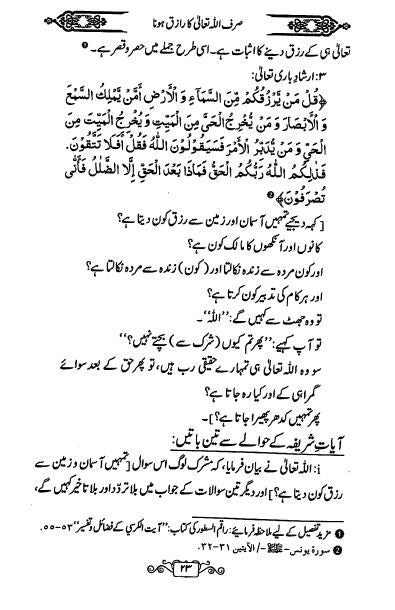 صرف اللہ تعالیٰ کا رازق ہونا
تعالیٰ ہی کے رزق دینے کا اثبات ہے۔ اسی طرح جملے میں حصر و قصر ہے۔ ❶
۳: ارشادِ باری تعالیٰ:
﴿قُلْ مَنْ يَّرْزُقُكُمْ مِّنَ السَّمَآءِ وَ الْاَرْضِ اَمَّنْ يَّمْلِكُ السَّمْعَ
وَ الْاَبْصَارَ وَ مَنْ يُّخْرِجُ الْحَيَّ مِنَ الْمَيِّتِ وَ يُخْرِجُ الْمَيِّتَ مِنَ
الْحَيِّ وَ مَنْ يُّدَبِّرُ الْاَمْرَ فَسَيَقُوْلُوْنَ اللّٰهُ فَقُلْ اَفَلَا تَتَّقُوْنَ.
فَذٰلِكُمُ اللّٰهُ رَبُّكُمُ الْحَقُّ فَمَاذَا بَعْدَ الْحَقِّ اِلَّا الضَّلٰلُ فَاَنّٰى
تُصْرَفُوْنَ﴾ ❷
[کہہ دیجیے تمہیں آسمان اور زمین سے رزق کون دیتا ہے؟
کانوں اور آنکھوں کا مالک کون ہے؟
اور کون مردہ سے زندہ نکالتا اور (کون) زندہ سے مردہ نکالتا ہے؟
اور ہر کام کی تدبیر کون کرتا ہے؟
تو وہ جھٹ سے کہیں گے: ’’اللہ‘‘۔
تو آپ کہیے: ’’پھر تم کیوں (شرک سے) بچتے نہیں؟‘‘
سو وہ اللہ تعالیٰ ہی تمہارے حقیقی رب ہیں، تو پھر حق کے بعد سوائے
گمراہی کے اور کیا رہ جاتا ہے؟
پھر تمہیں کدھر پھیرا جاتا ہے؟]۔
آیاتِ شریفہ کے حوالے سے تین باتیں:
i: اللہ تعالیٰ نے بیان فرمایا، کہ مشرک لوگ اس سوال [تمہیں آسمان و زمین سے
رزق کون دیتا ہے؟] اور دیگر تین سوالات کے جواب میں بلا تردّد اور بلا تاخیر کہیں گے،
❶ مزید تفصیل کے لیے ملاحظہ فرمائیے: راقم السطور کی کتاب: ’’آیت الکرسی کے فضائل و تفسیر‘‘ ۵۳-۵۵۔
❷ سورۃ یونس ۔ ﷺ ۔/ الآیتین ۳۱-۳۲.
۲۳